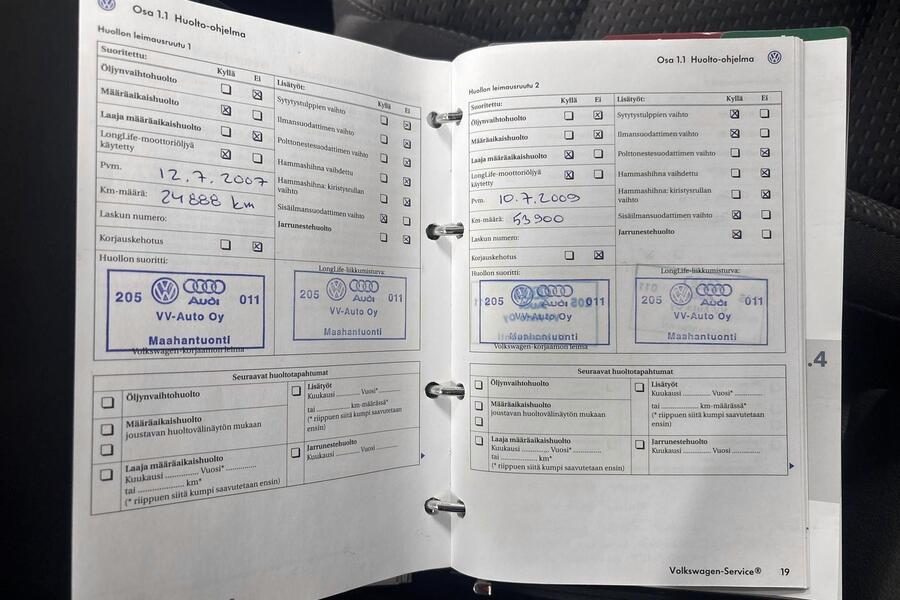 Osa 1.1 Huolto-ohjelma
Huollon leimausruutu 1
Suoritettu:
Kyllä Ei
Öljynvaihtohuolto
Määräaikaishuolto
Laaja määräaikaishuolto
LongLife-moottoriöljyä
käytetty
Pvm. 12.7.2007
Km-määrä: 24888 km
Laskun numero:
Korjauskehotus
Huollon suoritti:
205 Audi 011
VV-Auto Oy
Maahantuonti
Volkswagen-korjaamon leima
Lisätyöt:
Kyllä Ei
Sytytystulppien vaihto
Ilmansuodattimen vaihto
Polttonestesuodattimen vaihto
Hammashihna vaihdettu
Hammashihna: kiristysrullan
vaihto
Sisäilmansuodattimen vaihto
Jarrunestehuolto
LongLife-liikkumisturva:
205 Audi 011
VV-Auto Oy
Maahantuonti
Seuraavat huoltotapahtumat
Öljynvaihtohuolto
Määräaikaishuolto
joustavan huoltovälinäytön mukaan
Laaja määräaikaishuolto
Kuukausi ............ Vuosi* ............
tai ............ km*
(* riippuen siitä kumpi saavutetaan ensin)
Lisätyöt
Kuukausi ............ Vuosi* ............
tai ............ km-määrässä*
(* riippuen siitä kumpi saavutetaan
ensin)
Jarrunestehuolto
Kuukausi ............ Vuosi ............
Osa 1.1 Huolto-ohjelma
Huollon leimausruutu 2
Suoritettu: Kyllä Ei
Öljynvaihtohuolto
Määräaikaishuolto
Laaja määräaikaishuolto
LongLife-moottoriöljyä
käytetty
Pvm. 10.7.2009
Km-määrä: 53900
Laskun numero:
Korjauskehotus
Huollon suoritti:
205 Audi 011
VV-Auto Oy
Maahantuonti
Volkswagen-korjaamon leima
Lisätyöt: Kyllä Ei
Sytytystulppien vaihto
Ilmansuodattimen vaihto
Polttonestesuodattimen vaihto
Hammashihna vaihdettu
Hammashihna: kiristysrullan
vaihto
Sisäilmansuodattimen vaihto
Jarrunestehuolto
LongLife-liikkumisturva:
205 Audi 011
VV-Auto Oy
Maahantuonti
Seuraavat huoltotapahtumat
Öljynvaihtohuolto
Määräaikaishuolto
joustavan huoltovälinäytön mukaan
Laaja määräaikaishuolto
Kuukausi ............ Vuosi* ............
tai ............ km*
(* riippuen siitä kumpi saavutetaan ensin)
Lisätyöt
Kuukausi ............ Vuosi* ............
tai ............ km-määrässä*
(* riippuen siitä kumpi saavutetaan
ensin)
Jarrunestehuolto
Kuukausi ............ Vuosi ............
Volkswagen-Service® 19
.4